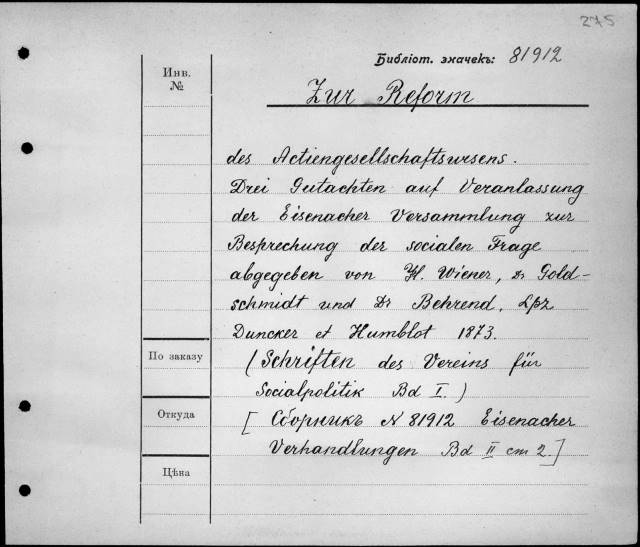 275
Библіот. значекъ: 81912
Инв.
№
Zur Reform
des Actiengesellschaftswesens.
Drei Gutachten auf Veranlassung
der Eisenacher Versammlung zur
Besprechung der socialen Frage
abgegeben von H. Wiener, Dr Gold-
schmidt und Dr Behrend. Lpz
Duncker et Humblot 1873.
По заказу
(Schriften des Vereins für
Socialpolitik Bd I.)
Откуда
[Сборникъ N 81912 Eisenacher
Verhandlungen Bd II ст 2.]
Цѣна